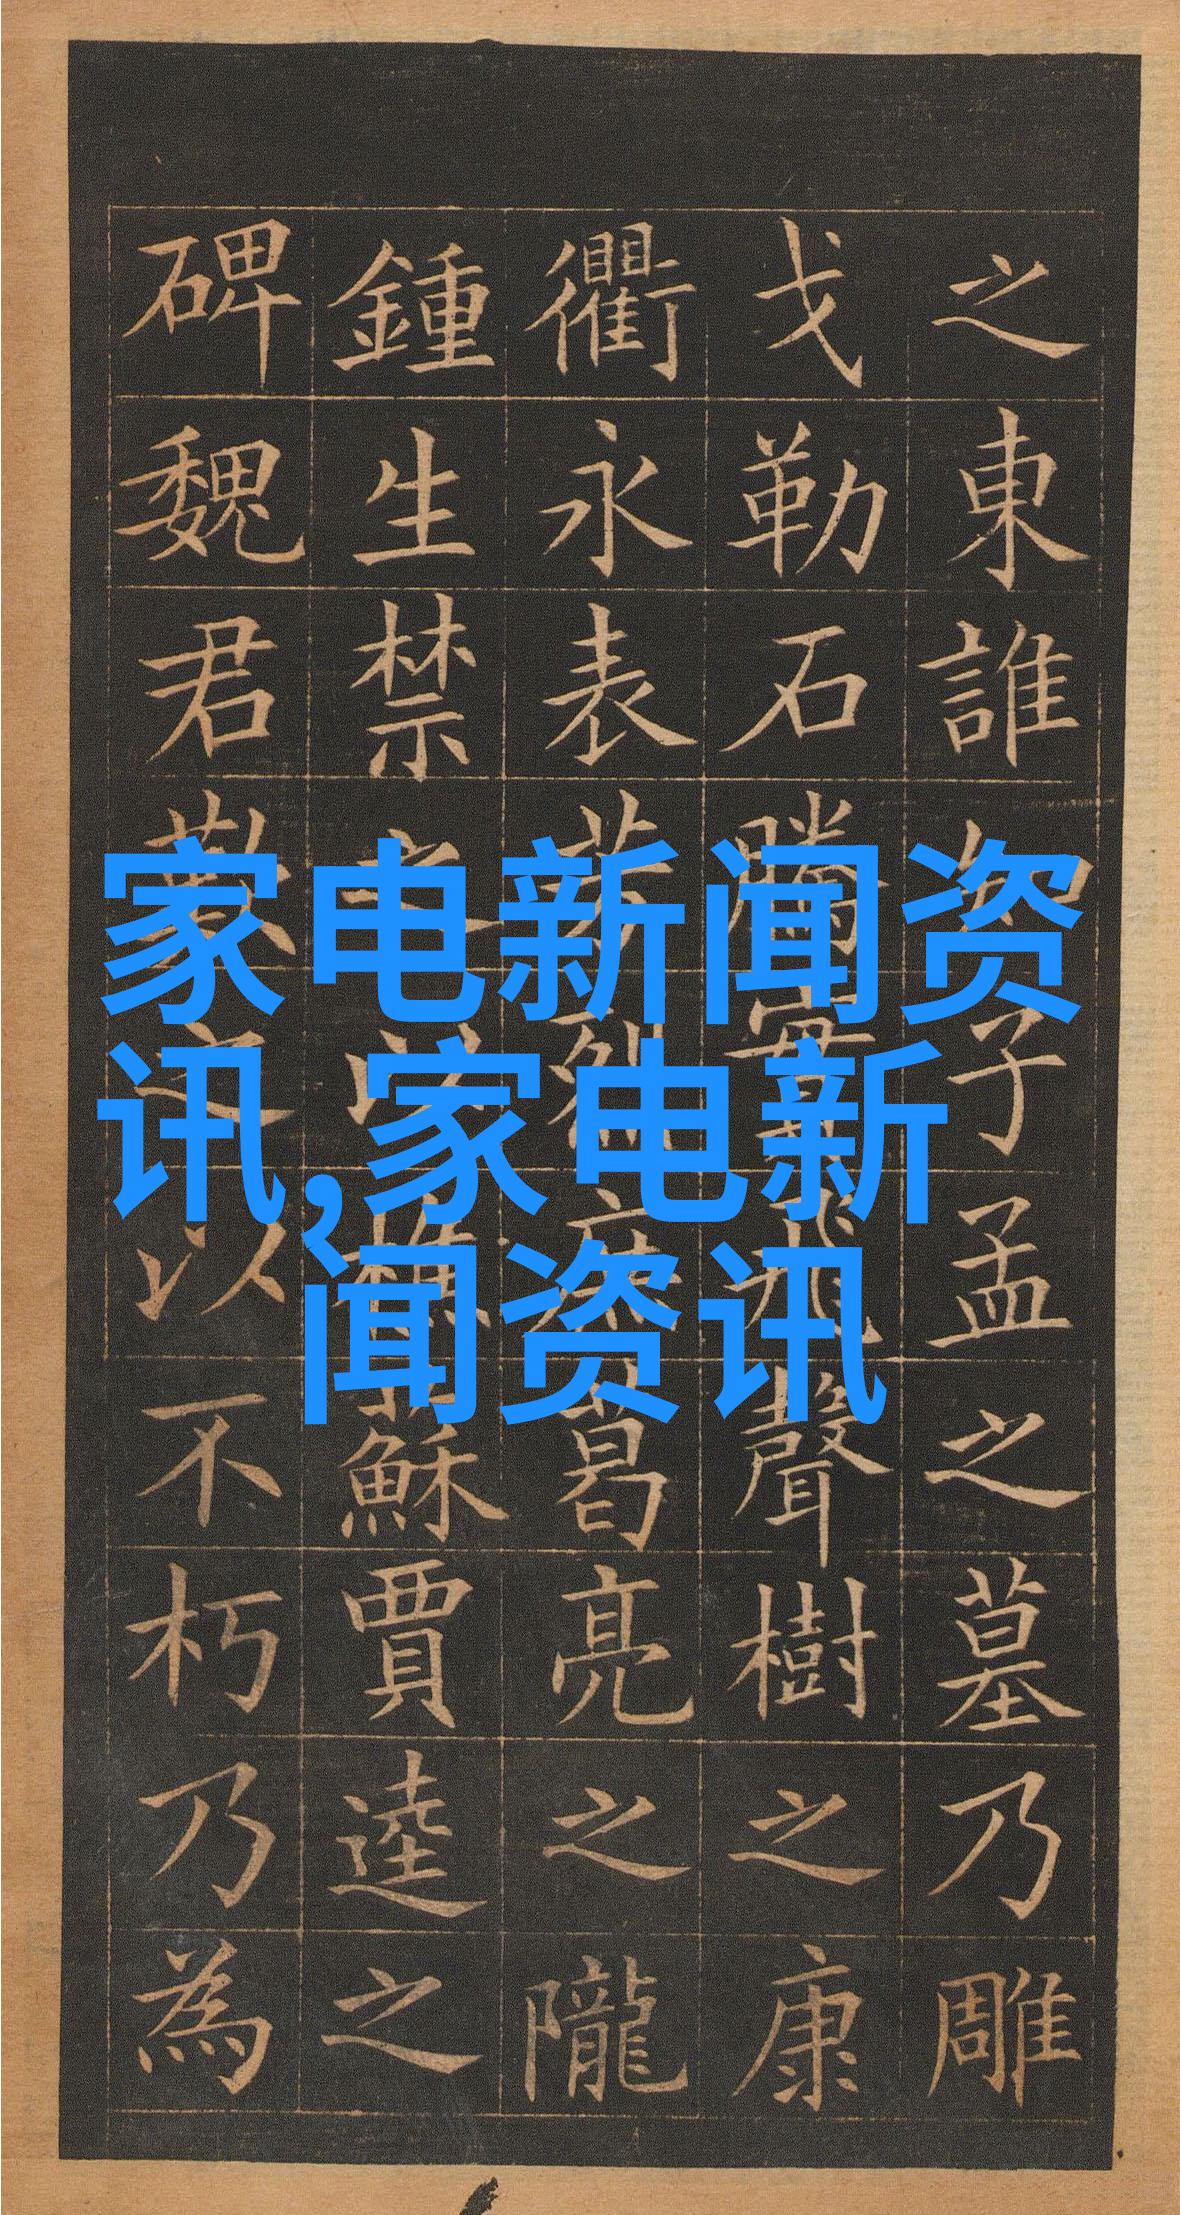 之東誰知子孟之墓乃雕
戈勒石騰實飛聲樹之康
衢永表芳庶葛亮之隴
鍾生禁之以樵蘇賈逵之
碑魏君歎之以不朽乃為
家电新闻资
讯,家电新
闻资讯